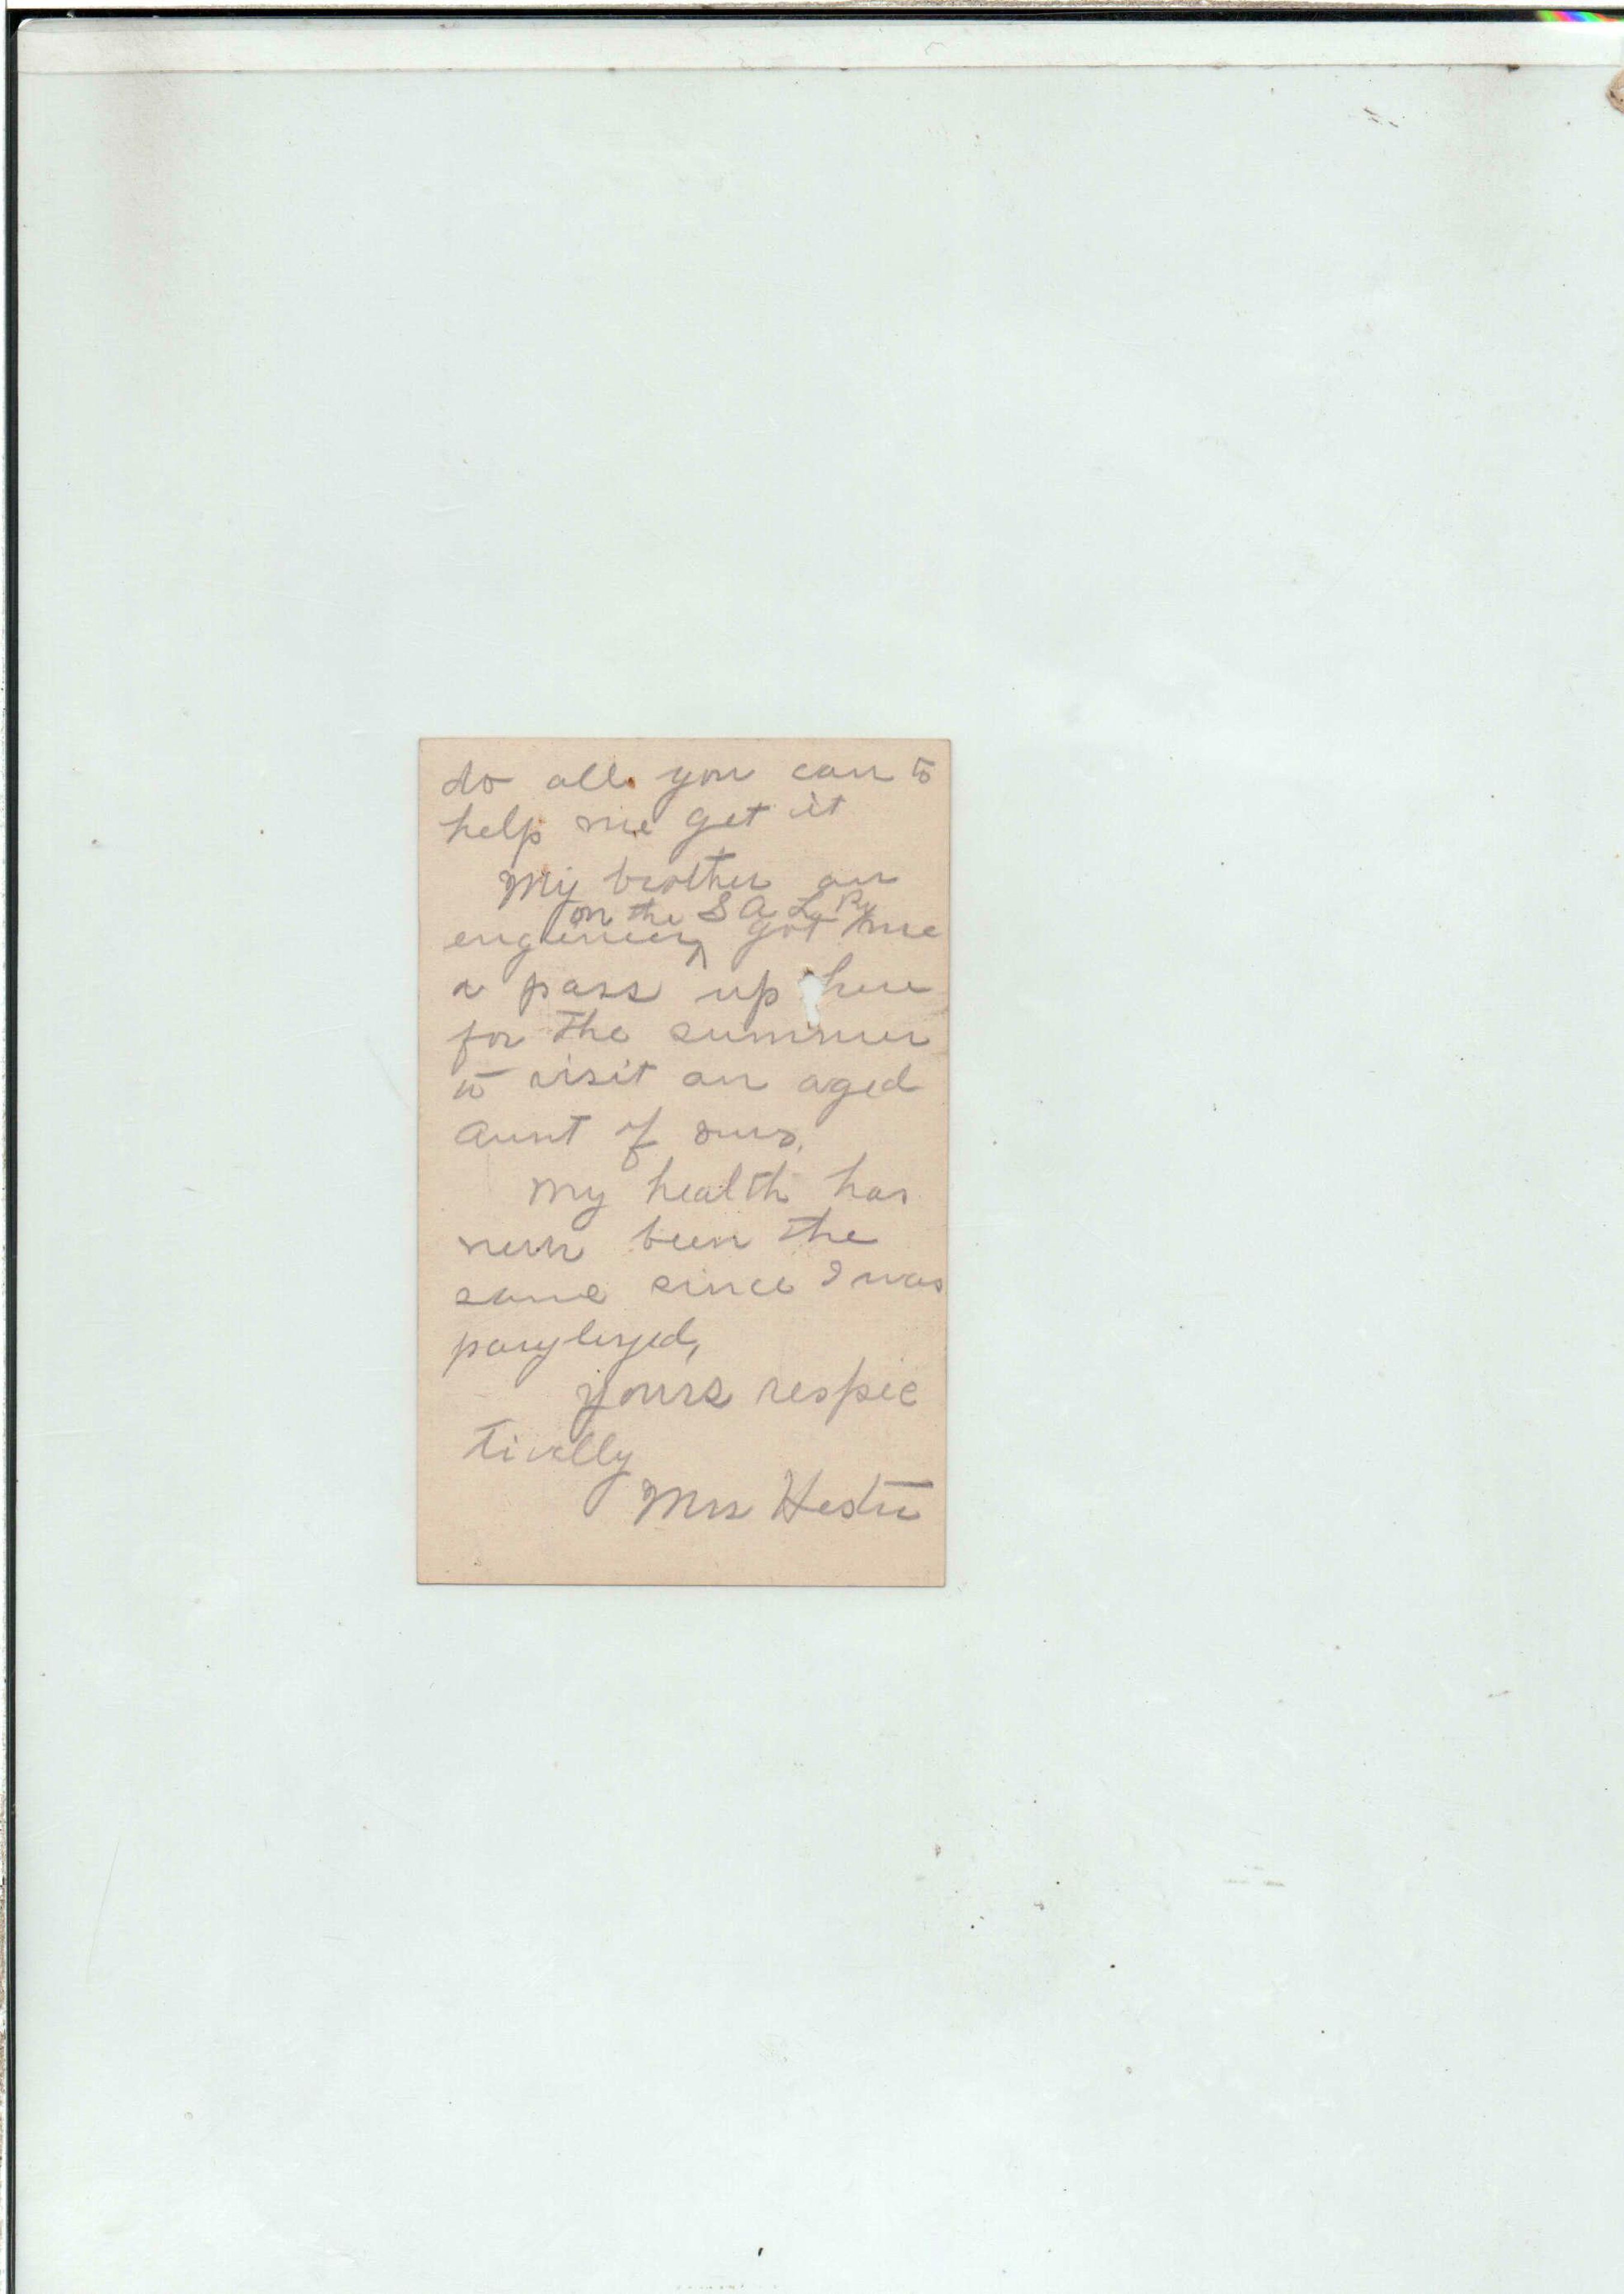 do all you can to
help me get it
My brother an
on the S A L Ry
engineer ^ got me
a pass up here
for the summer
to visit an aged
aunt of ours.
My health has
never been the
same since I was
parylyzed,
yours respec
tivelly
Mrs Hester